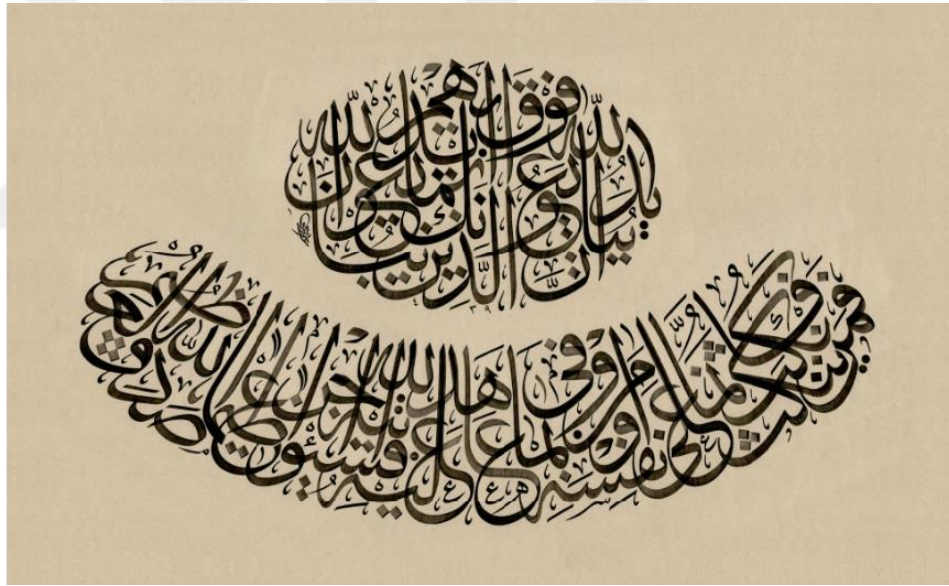 إن الذين يبايعونك إنما يبايعون الله يد الله فوق أيديهم
فمن نكث فإنما ينكث على نفسه ومن أوفى بما عاهد عليه الله فسيؤتيه أجرا عظيما صدق الله العظيم